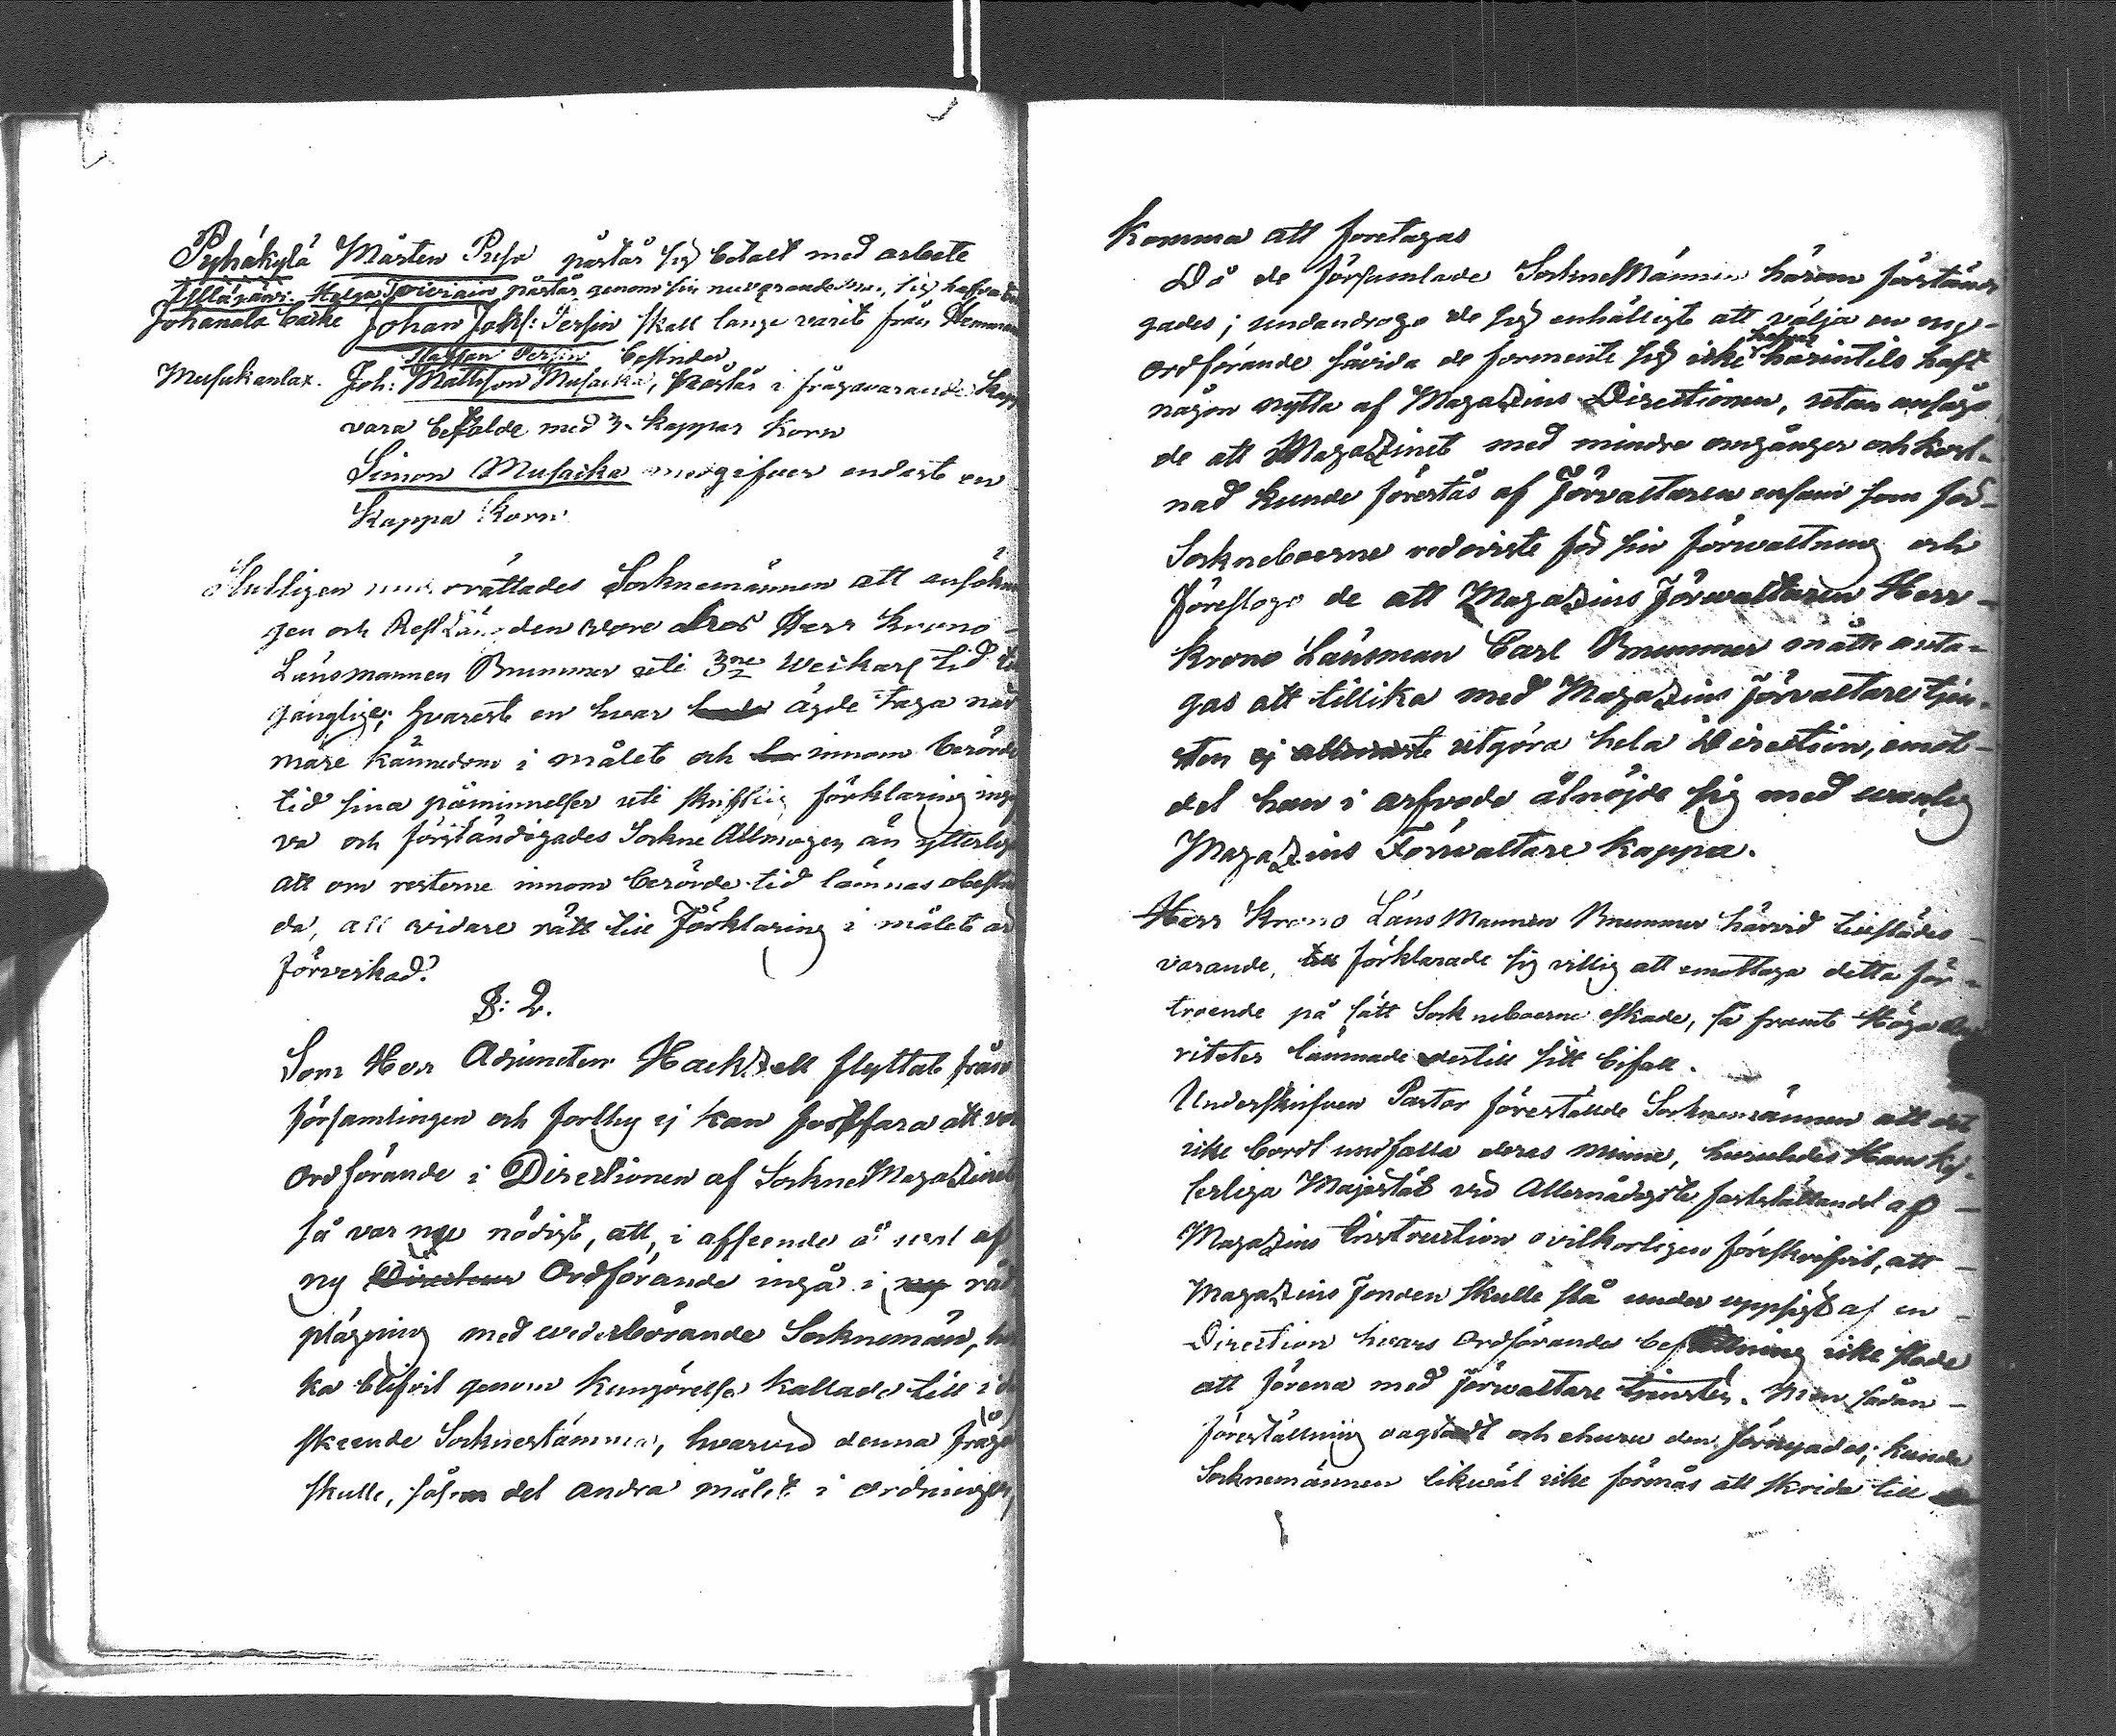 Pyhäkylä Mårten Pusa påstår sig betalt med arbete
Helga Toivjain påstår genom sin nuvarande sig hafva
Johanala backe Johan Jaks: Persin skall lange varit från Hemmanet
Staffan Persin bestrider
Musakanlax. Joh: Mattsson Musacka, påstår i frågavarande Kapp
vara befalde med 3 kappar Korn
Simon Musacka medgifver endast en
Kappa Korn
Slutligen underrättades Socknemännen att ansöknin
gen och Restlängden vore hos Herr Krono
Länsmannen Brummer uti 3ne Weckars tid till
gänglige; hvarest en hvar ägde taga när
mare kännedom i målet och innom berörde
tid sina påminnelser uti skriftlig förklaring inge
va och förständigades Sockne Allmogen än ytterlige
att om resterne innom berörde tid lämnas obestri
da, all vidare rätt till Förklaring i målet är
förverkad.
§: 2.
Som Herr Adjuncten Hackzell flyttat från
församlingen och forthy ej kan fortfara att vara
ordförande i Directionen af Sockne Magazinet
så var nu nödigt, att, i afseende å val af
ny Directeur Ordförande ingå i ny råd
plägning med vederbörande Socknemän, hvil
ka blifvit genom kungörelse kallade till i dag
skeende Socknestämma, hvarvid denna fråga
skulle, såsom det andra målet i ordningen,
Komma att företagas
Då de församlade Sockne Männen härom förständi
gades; undandrogo de sig enhälligt att välja en ny
ordförande såvida de formente sig icke härintils haft
någon nytta af Magazins Directionen, utan ansågo
de att Magazinet med mindre omgånger och kost-
nad kunde förestås af Förvaltaren ensam som för
Sockneboerne redoviste för sin förwaltning och
Föreslogo de att Magazins Förwaltaren Herr
Krono Länsman Carl Brummer måtte anta-
gas att tillika med Magazins Förvaltare tjen-
sten ej allenast utgöra hela Direction, emot
det han i arfvode åtnöjde sig med vanlig
Magazins Förwaltare Kappa.
Herr Krono Läns Mannen Brummer härvid tillstädes
varande, förklarade sig villig att emottaga detta för-
troende på sätt Sockneboerne eskade, så framt Höga Auc
riteter lämnade dertill sitt bifall.
Underskrifven Pastor föreställde Socknemännen att det
icke bordt undfalla deras minne, hurusledes Hans Kej-
serliga Majestät vid Allernådigste fastställandet af
Magazins Instruction ovilkorligen föreskrifvit, att
Magazins Fonden skulle stå under uppsigt af en
Direction hvars Ordförandes befattning icke stode
att förena med Förwaltare tjensten. Men sådan
föreställning oagtadt och ehuru den förnyades; kunde
Socknemännen likwäl icke förmås att skrida till